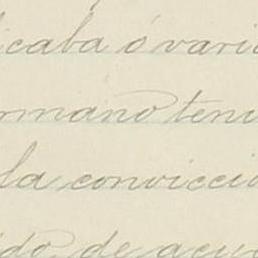 icaba ó vario
rmano teni
la convicció
ido de acue